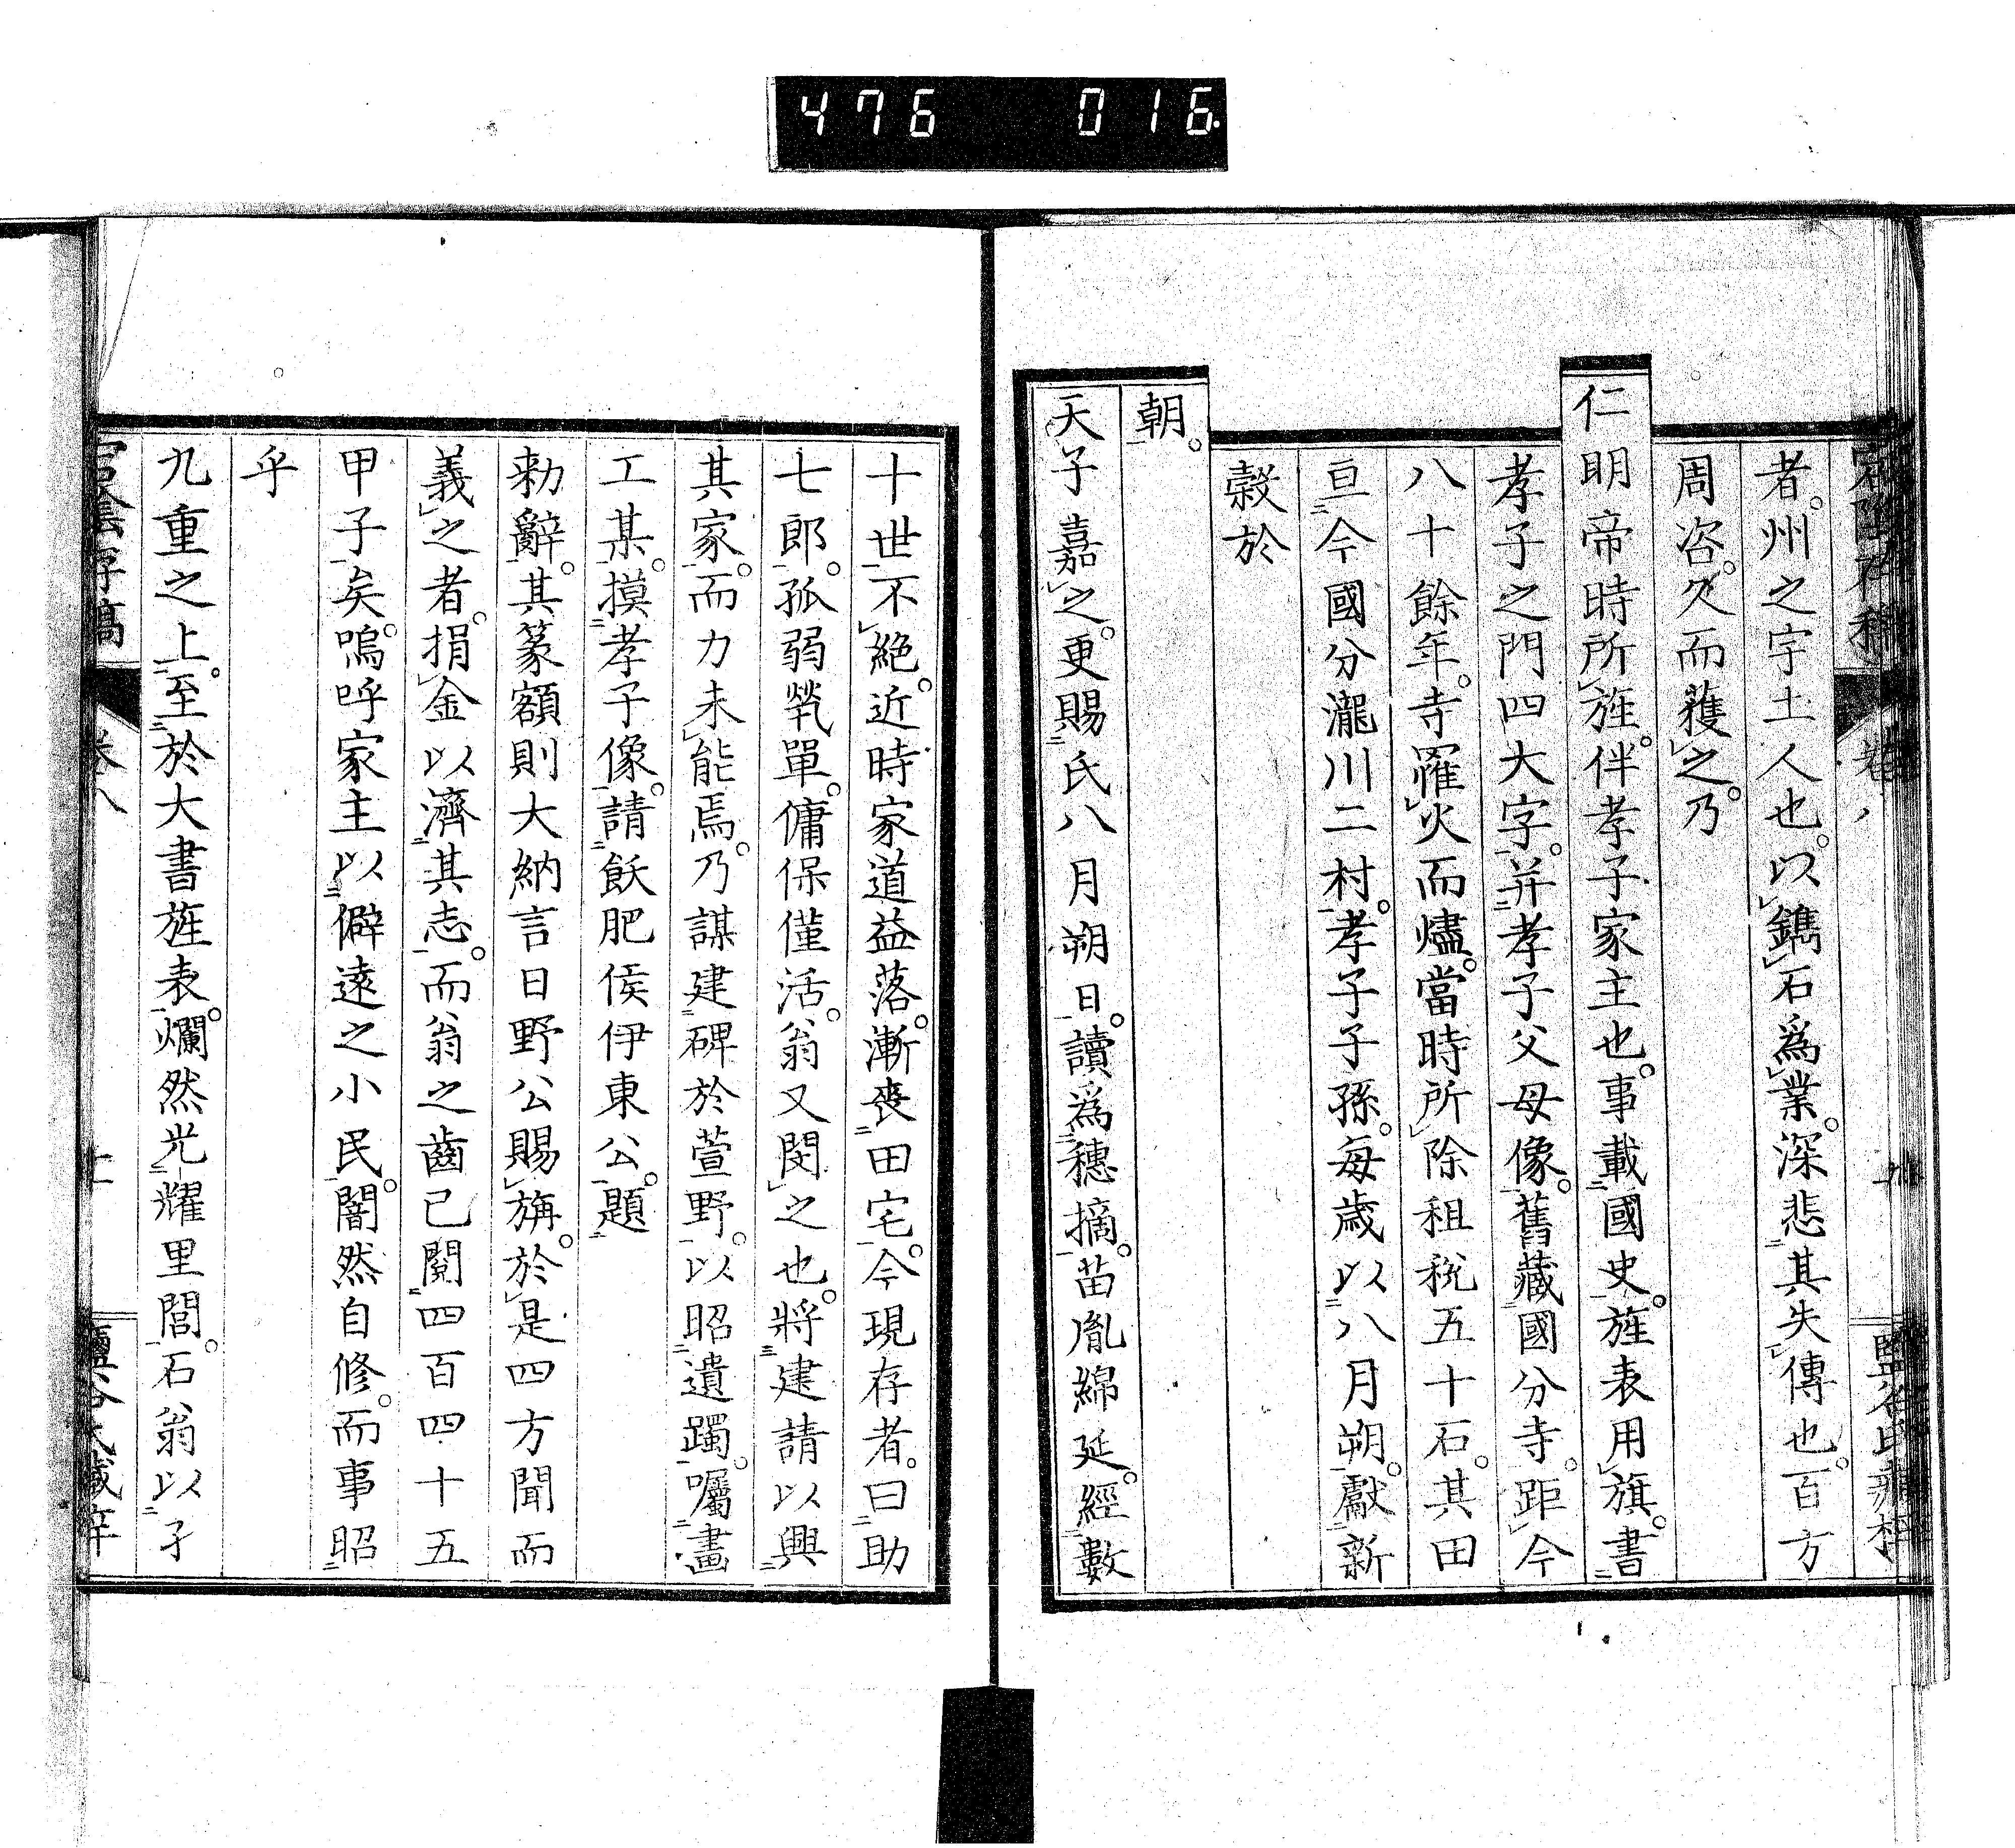 476 016
者。州之宇土人也。以鐫石爲業。深悲其失傳也。百方
周咨。久而獲之。乃
仁明帝時所旌。伴孝子家主也。事載國史。旌表用旗。書
孝子之門四大字。并孝子父母像。舊藏國分寺。距今
八十餘年。寺罹火而燼。當時所除租稅五十石。其田
亘今國分瀧川二村。孝子子孫。每歲以八月朔。獻新
穀於
朝。
天子嘉之。更賜氏八月朔日。讀爲穗摘。苗胤綿延。經數
十世不絕。近時家道益落。漸喪田宅。今現存者。曰助
七郎。孤弱煢單。傭保僅活。翁又閔之也。將建請以興
其家。而力未能焉。乃謀建碑於萱野。以昭遺躅。囑畫
工某。摸孝子像。請飫肥侯伊東公。題
勑辭。其篆額則大納言日野公賜旃。於是四方聞而
義之者。捐金以濟其志。而翁之齒已閱四百四十五
甲子矣。嗚呼家主以僻遠之小民。闇然自修。而事昭
乎
九重之上。至於大書旌表。爛然光耀里閭。石翁以孑
宕陰存稿
卷八